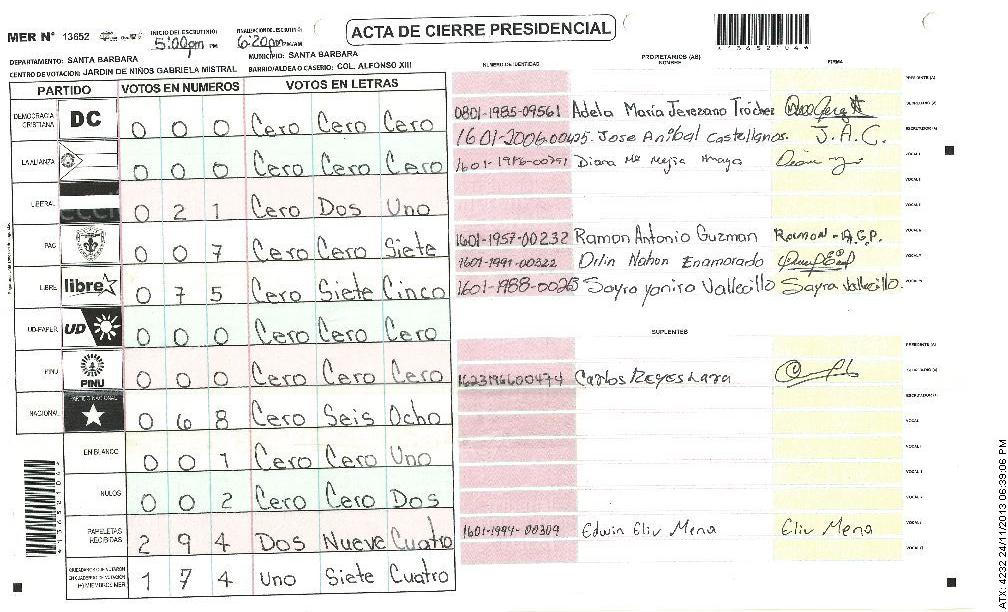 MER N° 13652
INICIO DEL ESCRUTINIO: 5:00pm PM
FINALIZACION DEL ESCRUTINIO: 6:20pm PM/AM
ACTA DE CIERRE PRESIDENCIAL
DEPARTAMENTO: SANTA BARBARA
MUNICIPIO: SANTA BARBARA
CENTRO DE VOTACION: JARDIN DE NIÑOS GABRIELA MISTRAL
BARRIO/ALDEA O CASERIO: COL. ALFONSO XIII
PARTIDO VOTOS EN NUMEROS VOTOS EN LETRAS
DEMOCRACIA CRISTIANA DC 0 0 0 Cero Cero Cero
LA ALIANZA 0 0 0 Cero Cero Cero
LIBERAL 0 2 1 Cero Dos Uno
PAC 0 0 7 Cero Cero Siete
LIBRE libre 0 7 5 Cero Siete Cinco
UD-FAPER UD 0 0 0 Cero Cero Cero
PINU PINU 0 0 0 Cero Cero Cero
NACIONAL PARTIDO NACIONAL 0 6 8 Cero Seis Ocho
EN BLANCO 0 0 1 Cero Cero Uno
NULOS 0 0 2 Cero Cero Dos
PAPELETAS RECIBIDAS 2 9 4 Dos Nueve Cuatro
CIUDADANOS QUE VOTARON EN CUADERNO DE VOTACION (+) MIEMBROS MER 1 7 4 Uno Siete Cuatro
PROPIETARIOS (AS)
NUMERO DE IDENTIDAD NOMBRE FIRMA
PRESIDENTE (A)
0801-1985-09561 Adela María Jerezano Tróchez SECRETARIO (A)
1601-2006-00425 Jose Anibal Castellanos. J.A.C. ESCRUTADOR (A)
Diana Mª Mejia VOCAL I
1601-1957-00232 Ramon Antonio Guzman Ramon-A.G.P.
1601-1991-00322 Orlin Nahon Enamorado
1601-1988-0026 Sayra yanira Vallecillo Sayra Vallecillo.
SUPLENTES
PRESIDENTE (A)
1623196600474 Carlos Reyes Lara SECRETARIO (A)
ESCRUTADOR (A)
VOCAL
1601-1994-00309 Edwin Eliv Mena Eliv Mena
ATX: 4232 24/11/2013 06:39:06 PM